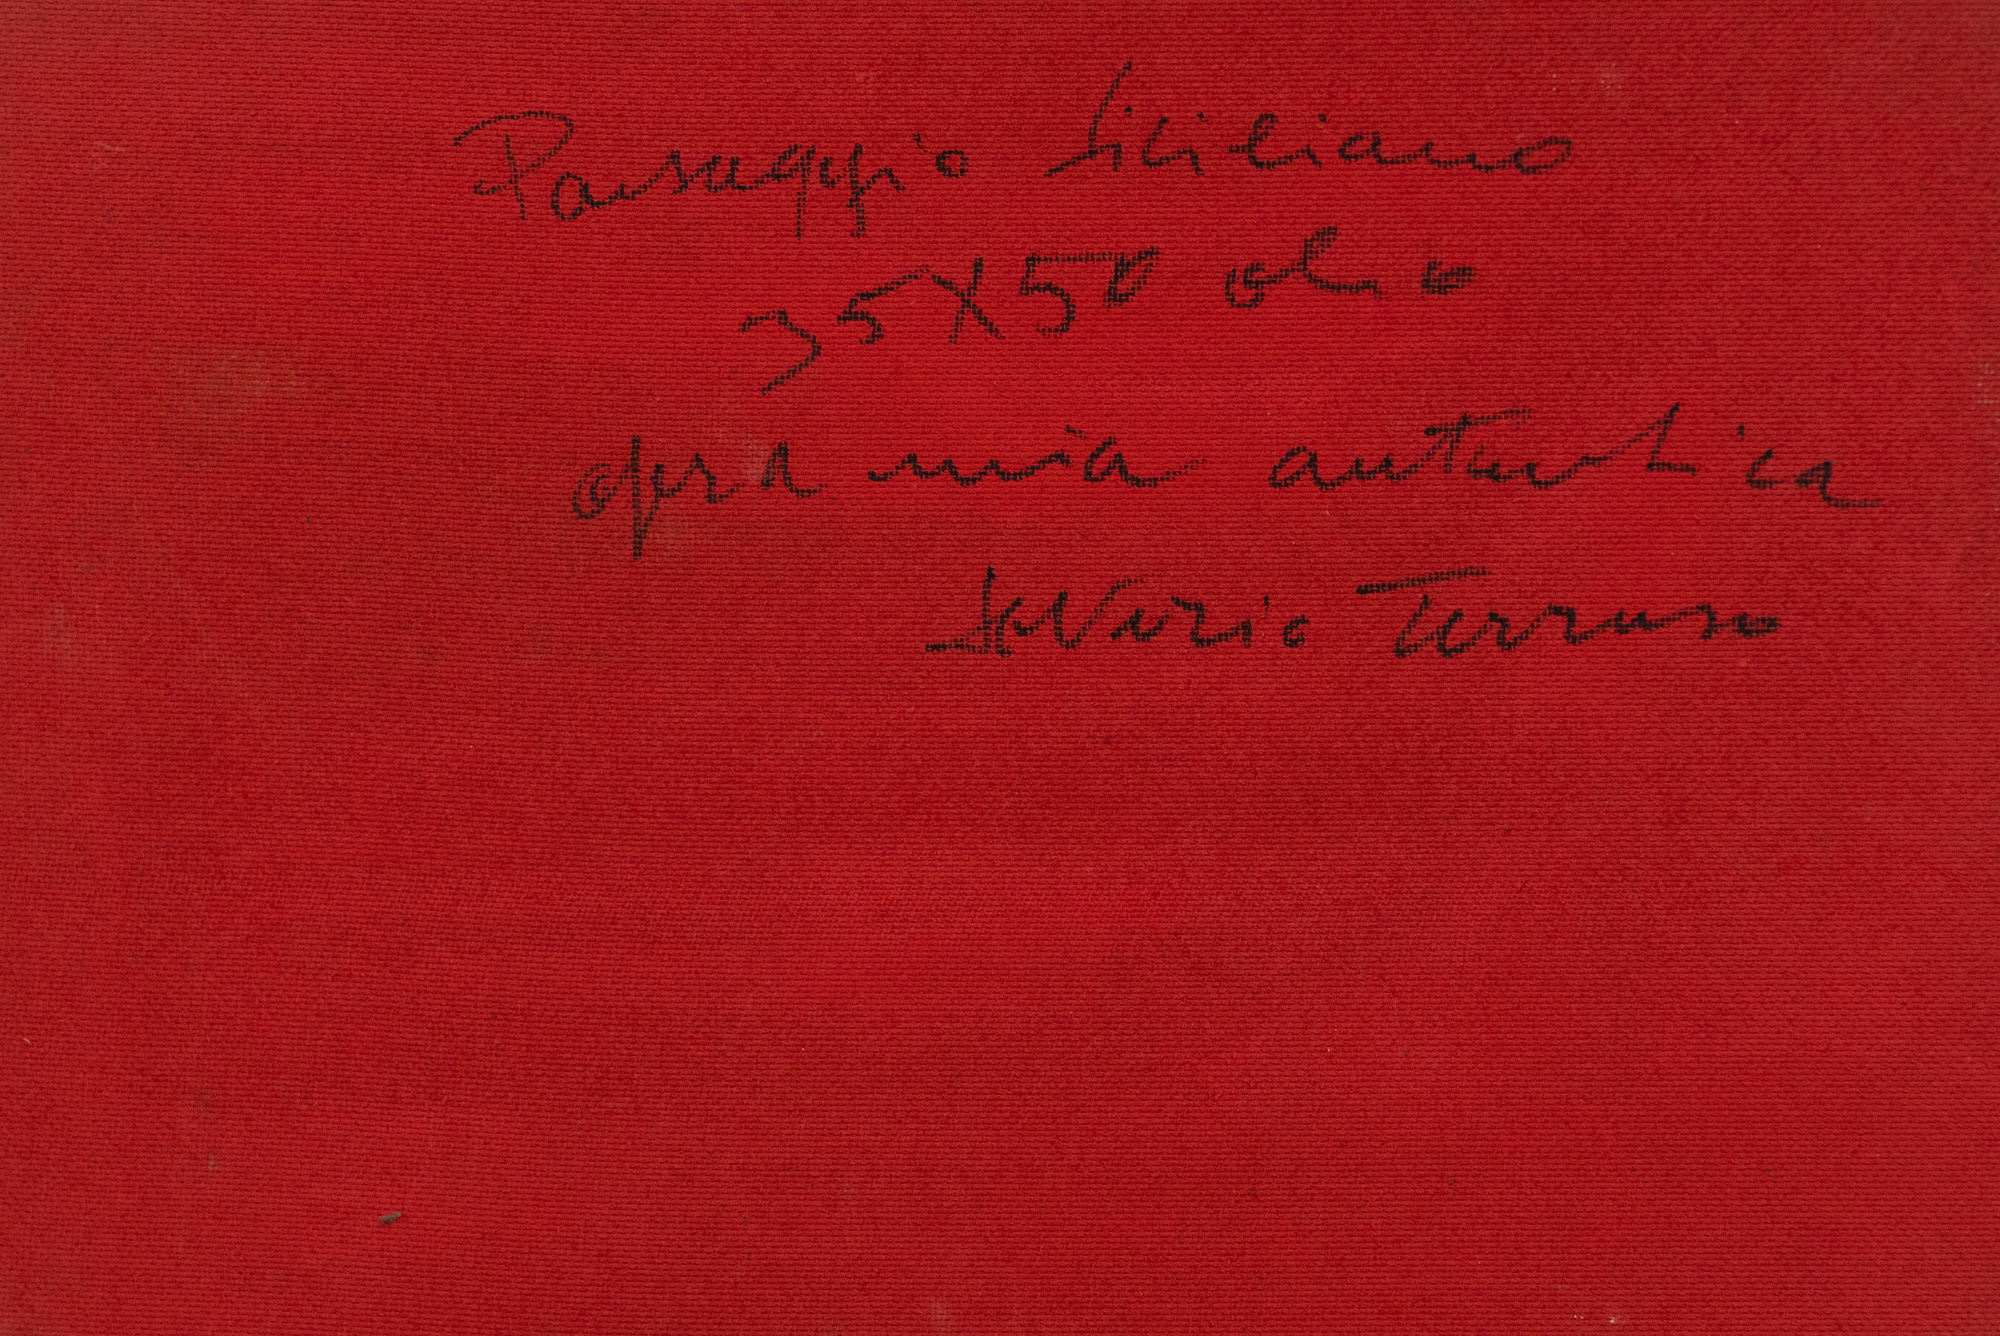 Paesaggio Siciliano
35X50 olio
opera mia autentica
SaVerio Terruso